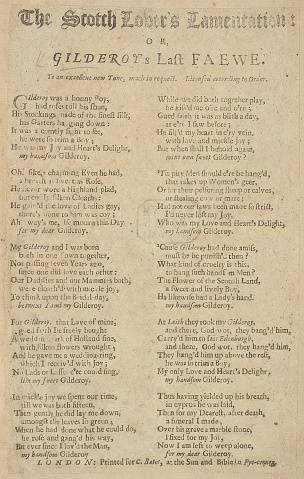 The Scotch Lover's Lamentation:
OR,
GILDEROY's Last FAEWE.
To an excellent new Tune, much in request. Licensed according to Order.
Gilderoy was a bonny Boy,
had roses till his shoon,
His Stockings made of the finest silk,
his Garters hanging down:
It was a comely sight to see,
he were so trim a Boy;
He was my Joy and Heart's Delight,
my handsom Gilderoy.
Oh! sike a charming Eyen he had,
breath as sweet as Rose,
He never wore a Highland plad,
but costly silken Cloaths;
He gain'd the love of Ladies gay,
there's none to him was coy:
Ah wa's me, mourning this Day
for my dear Gilderoy.
My Gilderoy and I was born
both in one Town together,
Not passing seven Years ago,
since one did love each other:
Our Daddies and our Mammies both,
were cloath'd with mickle joy,
To think upon the Bridal-day,
betwixt I and my Gilderoy.
For Gilderoy, that Love of mine,
geud faith I freely bought
A wedding of Holland fine,
with silken flowers wrought;
And he gave me a wedding-ring,
which I receiv'd with Joy;
No Lads or Lasses e're could sing,
like my sweet Gilderoy.
In mickle joy we spent our time,
till we was both fifteen,
Then gently he did lay me down,
amongst the leaves so green;
When he had done what he could do,
he rose and gang'd his way,
But ever since I lov'd the Man,
my handsom Gilderoy.
While we did both together play,
he kiss'd me o're and o're;
Geud faith it was as blith a day,
as e're I saw before;
He fill'd my heart in e'ry vein,
with love and mickle joy;
But when shall I behold again,
mine own sweet Gilderoy?
'Tis pity Men should e're be hang'd,
that takes up Women's geer,
Or for their pelfering sheep or calves,
or stealing cow or mare;
Had not our laws been made so strict,
I'd never lost my Joy,
Who was my Love and Heart's Delight,
my handsom Gilderoy.
'Cause Gilderoy had done amiss,
must he be punish'd then?
What kind of cruelty is this,
to hang such handsom Men?
The Flower of the Scotish Land,
a sweet and lively Boy,
He likewise had a Lady's hand,
my handsom Gilderoy.
At Leith they took my Gilderoy,
and there, God wot, they bang'd him,
Carry'd him to fair Edinburgh,
and there, God wot, they hang'd him,
They hang'd him up above the rest,
he was so trim a Boy,
My only Love and Heart's Delight,
my handsom Gilderoy.
Thus having yielded up his breath,
in cypres he was laid,
Then for my Dearest, after death,
a funeral I made;
Over his grave a marble stone
I fixed for my Joy,
Now I am left to weep alone,
for my dear Gilderoy.
LONDON: Printed for C. Bates, at the Sun and Bible in Pye-corner.